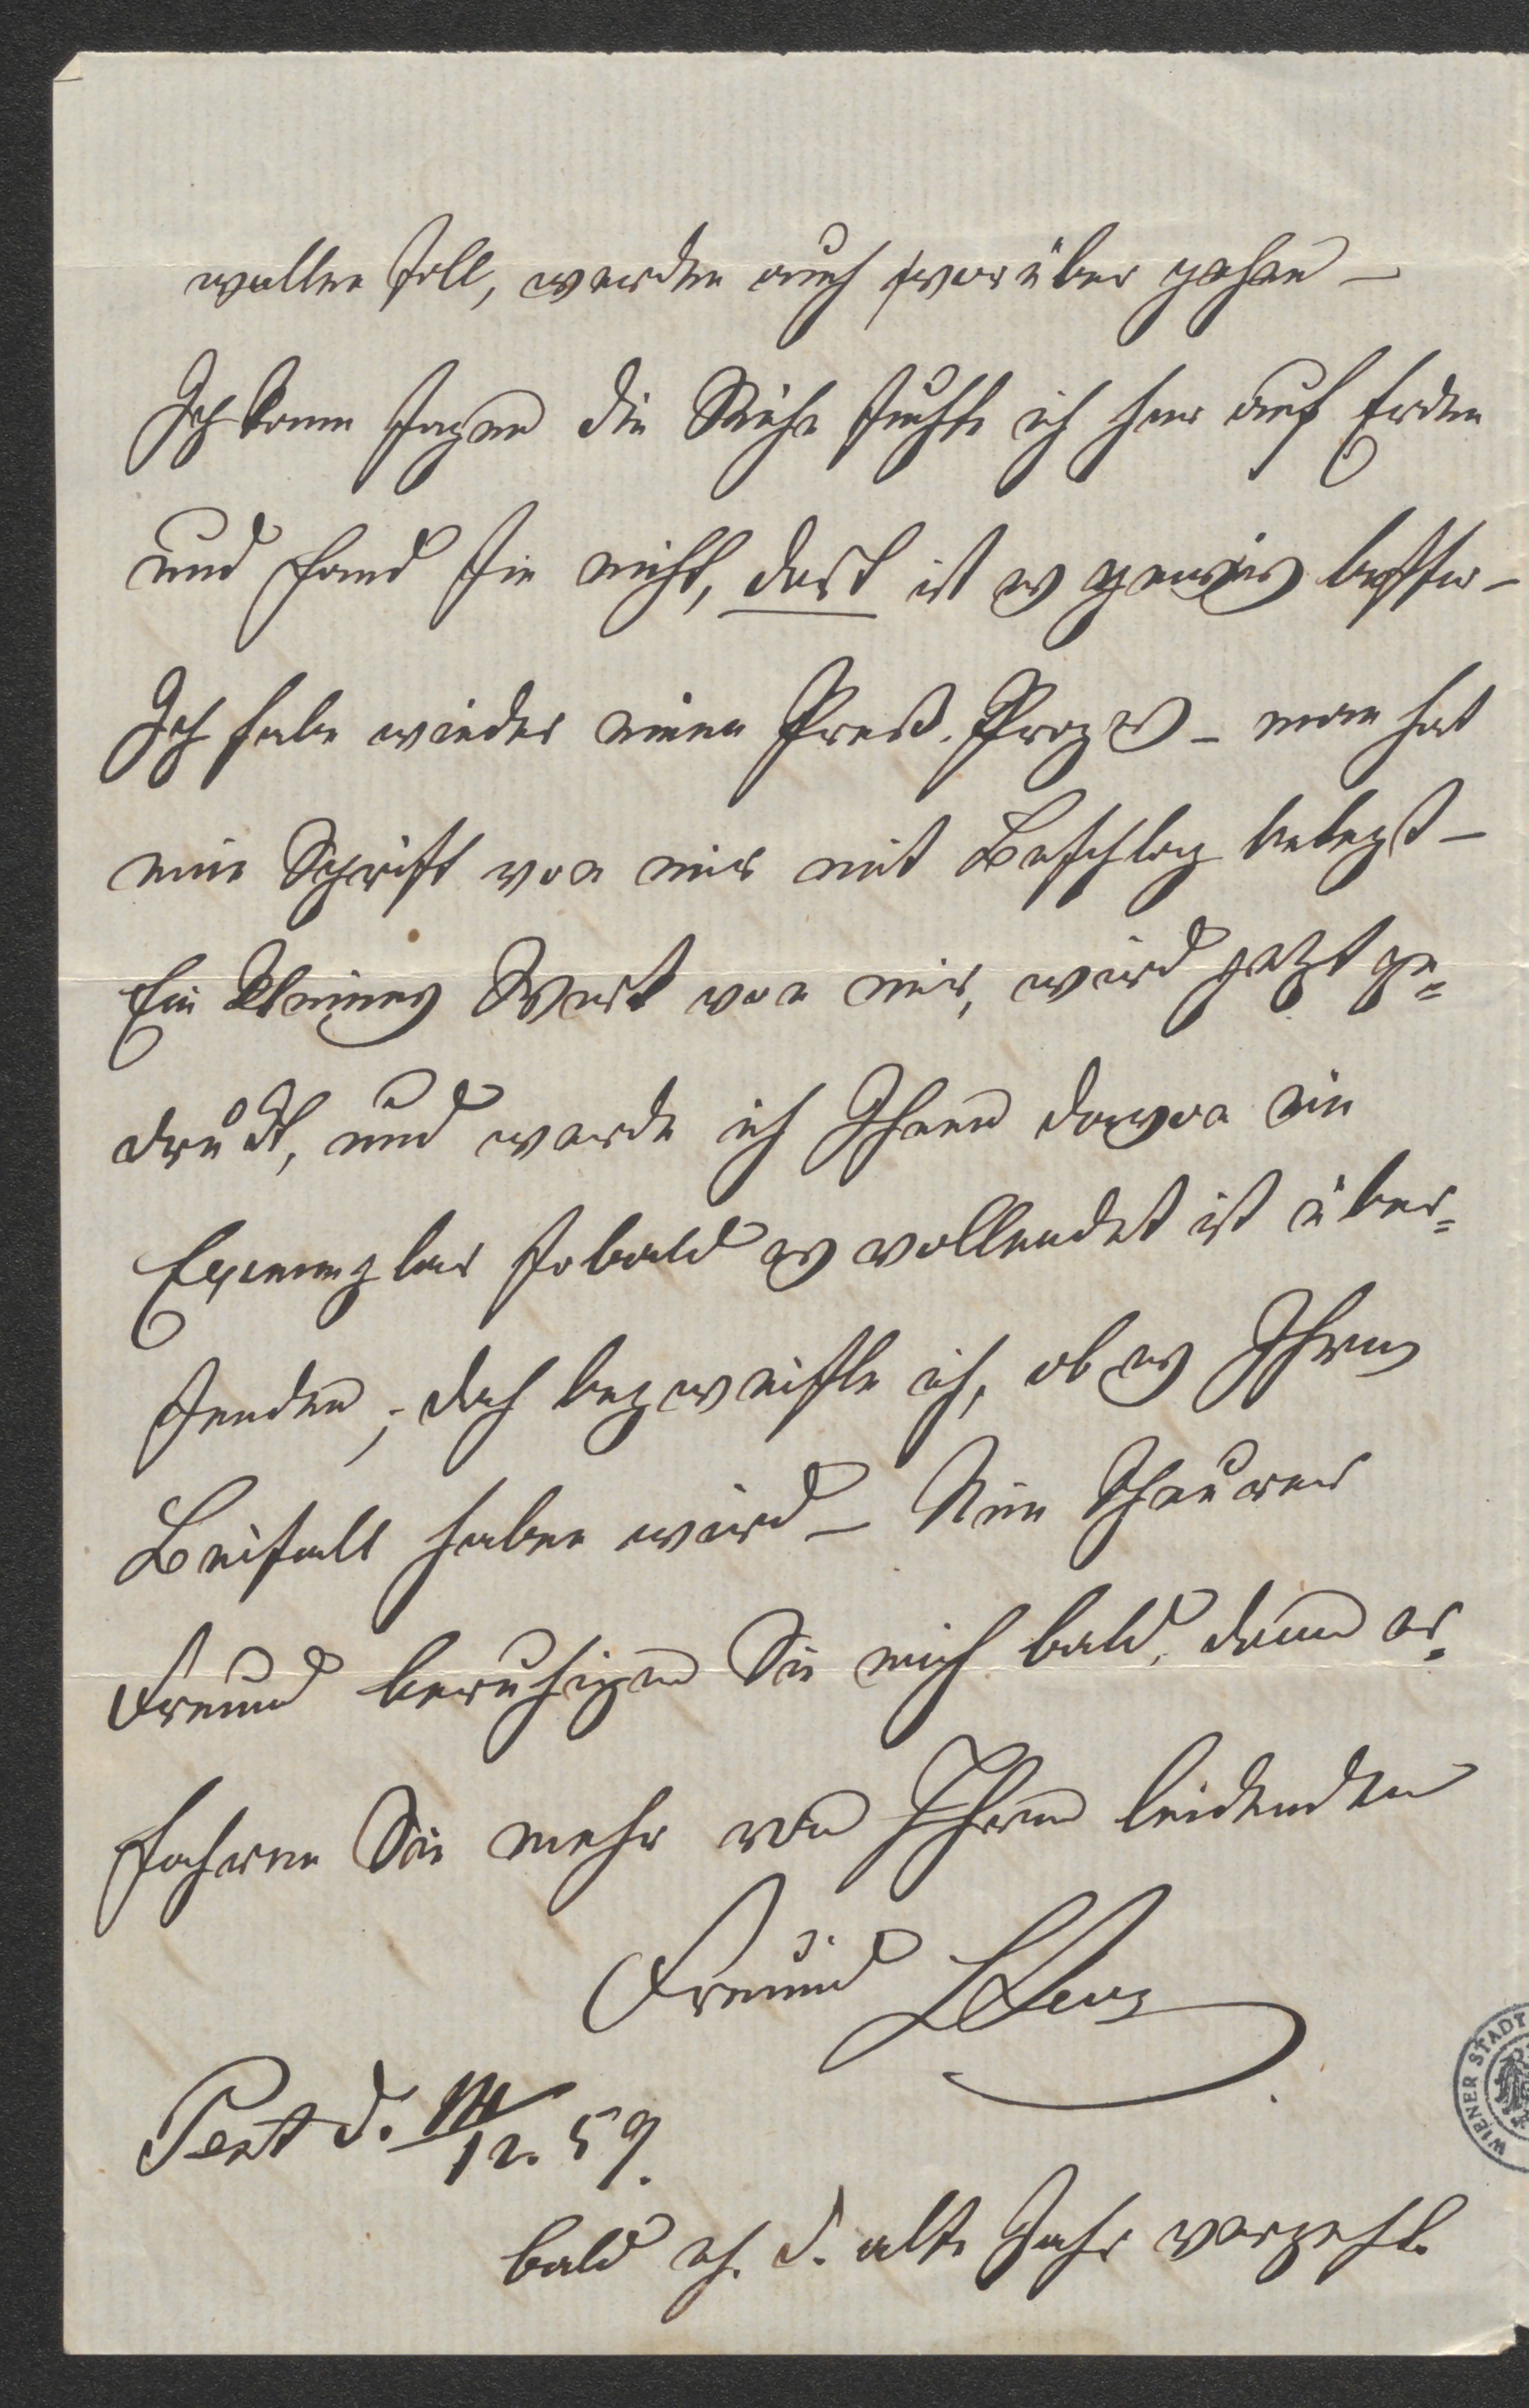 wollen soll, werden auch vorüber gehen –
Ich kann sagen die Ruhe suchte ich hier auf Erden
und fand sie nicht, dort ist es gewis besser –
Ich habe wieder einen Preß. Prozeß – man hat
eine Schrift von mir mit Beschlag belegt –
Ein kleines Werk von mir, wird jetzt ge=
druckt, und werde ich Ihnen davon ein
Exemplar sobald es vollendet ist über=
senden, – doch bezweifle ich, ob es Ihren
Beifall haben wird – Nun Theurer
Freund beruhigen Sie mich bald, dann er=
fahren Sie mehr von Ihrem leidenden
Freund
Pest d. /12. 59.
bald eh. d. alte Jahr vergeht.
WIENER STADT